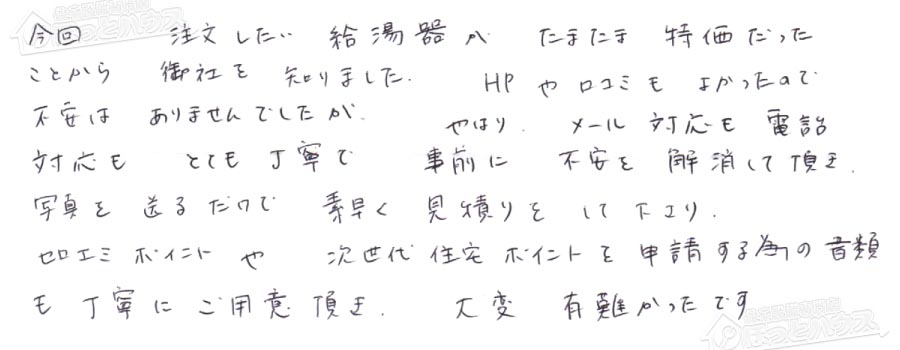 今回 注文したい 給湯器が たまたま 特価だった
ことから 御社を 知りました. HPや口コミも よかったので
不安は ありませんでしたが. やはり. メール 対応も 電話
対応も とても丁寧で 事前に 不安を 解消して頂き.
写真を 送るだけで 素早く 見積りを して下さり.
ゼロエミポイントや 次世代住宅ポイントを申請する為の書類
も丁寧にご用意頂き. 大変 有難かったです
ほっとハウス
ほっとハウス